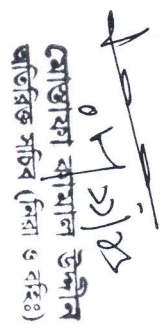 মোস্তাফা কামাল উদ্দীন
অতিরিক্ত সচিব (নিরা ও বহিঃ)